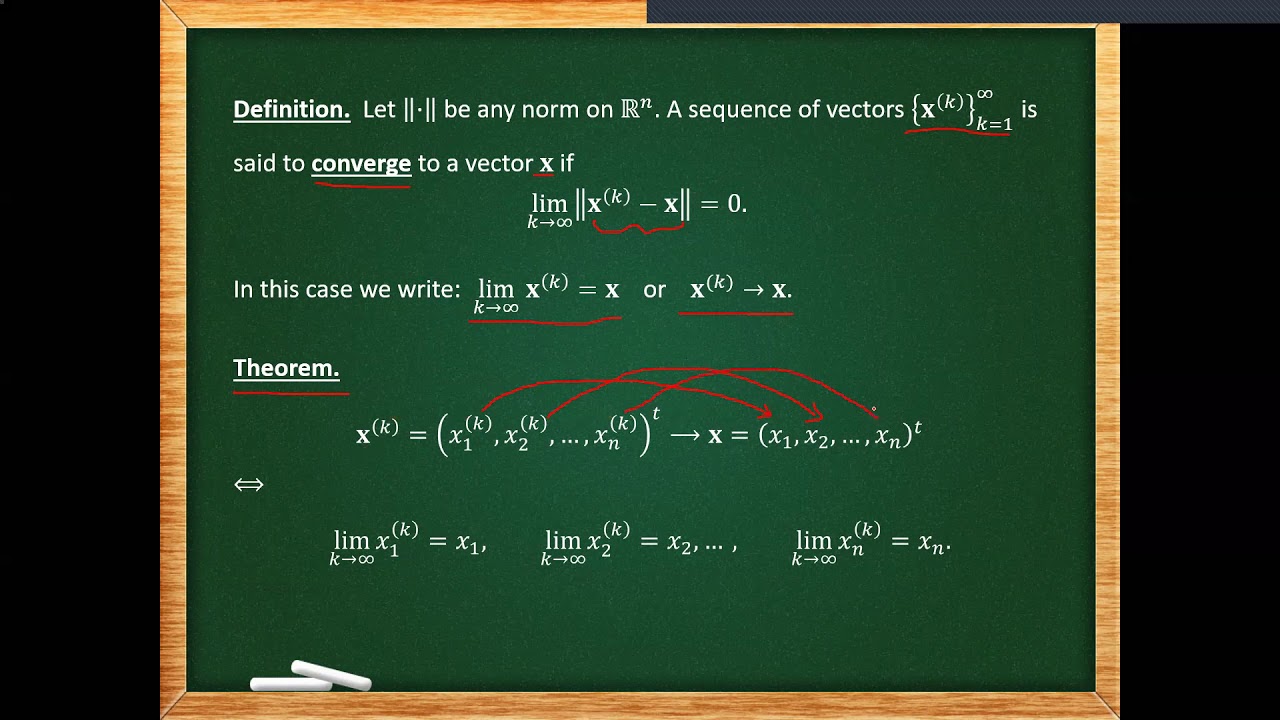 Definition. Let ‖·‖ be a norm on ℝⁿ. A sequence of vectors {𝐱^(k)}_{k=1}^∞ is
said to converge to a vector 𝐱 if
lim_{k→∞} ‖𝐱^(k) − 𝐱‖ = 0.
In this case we write: lim_{k→∞} 𝐱^(k) = 𝐱 or 𝐱^(k) → 𝐱.
Theorem.
𝐱^(k) = (x₁^(k), x₂^(k), … , xₙ^(k))^t ⟶ 𝐱 = (x₁, x₂, … , xₙ)^t
⟺
lim_{k→∞} x₁^(k) = x₁, lim_{k→∞} x₂^(k) = x₂, … , lim_{k→∞} xₙ^(k) = xₙ.